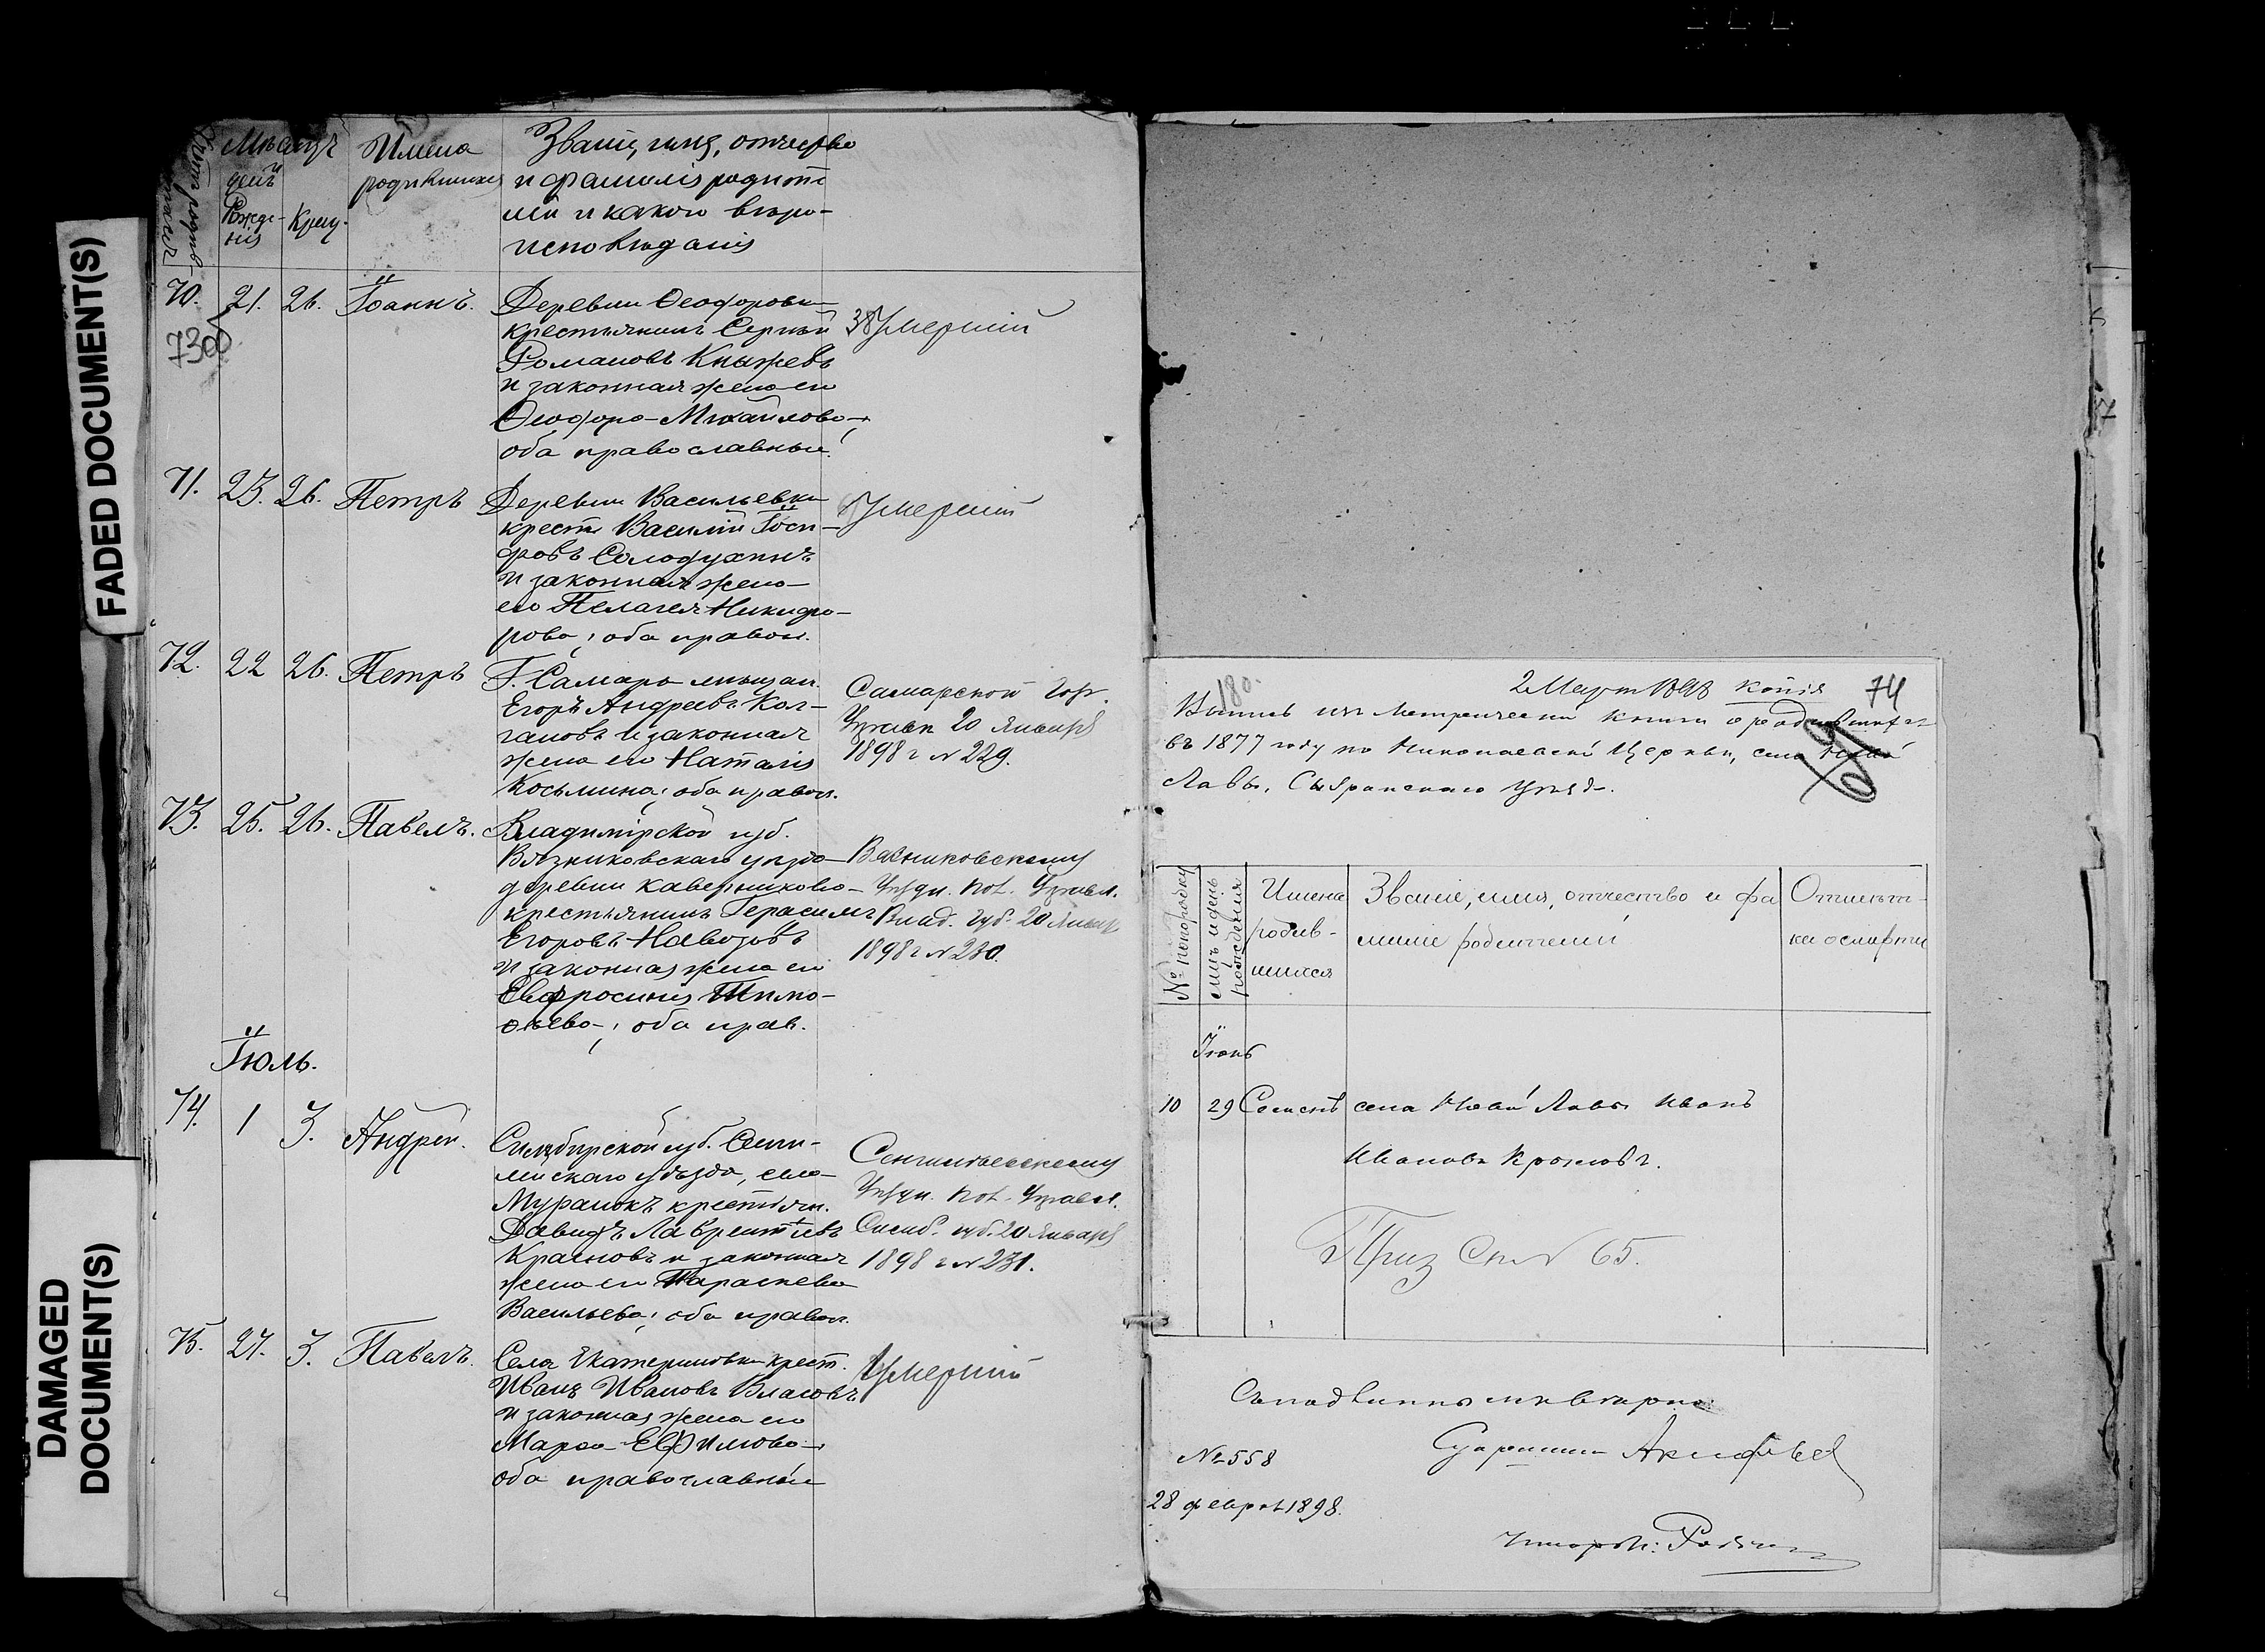 FADED DOCUMENT(S)
DAMAGED
DOCUMENT(S)
Мѣсяцъ
Имена
Званіе, имя, отчество
родившихся
и фамилія родите
лей и какого вѣро-
исповѣданія
Рожде-
нія
Крещ.
70. 21. 26. Іоаннъ.
730
Деревни Ѳеодоровки
крестьянинъ Сергѣй
Романовъ Княжевъ
и законная жена его
Ѳеодора Михайлова,
оба православные.
38 Умершій
71. 23. 26. Петръ
Деревни Васильевки
крест. Василій Іоси-
фовъ Солодухинъ
и законная жена
его Пелагея Никифо-
рова, оба правосл.
Умершій
72. 22 26. Петръ
Г. Самара мѣщан.
Егоръ Андреевъ Кол-
гановъ и законная
жена его Наталія
Косьмина, оба правосл.
Самарской Гор.
Управѣ 20 Января
1898 г № 229.
73. 25. 26. Павелъ.
Владимірской губ.
Вязниковскаго уѣзда
деревни Каверчиково
крестьянинъ Герасимъ
Егоровъ Навозовъ
и законная жена его
Евфросинія Тимо-
ѳеева, оба прав.
Вязниковскому
Уѣздн. Пол. Управл.
Влад. губ. 20 Января
1898 г № 230.
Іюль.
74. 1 3. Андрей.
Симбирской губ. Сенги-
лейскаго уѣзда, села
Муранокъ крестьян.
Давидъ Лаврентіевъ
Красновъ и законная
жена его Параскева
Васильева, оба правосл.
Сенгилеевскому
Уѣздн. Пол. Управл.
Симб. губ. 20 Января
1898 г № 231.
75. 27. 3. Павелъ.
Села Екатериновки крест.
Иванъ Ивановъ Власовъ
и законная жена его
Марѳа Ефимова,
оба православные
Умершій
180.
2 Март 1898 Копія 74
Выпись изъ Метрической книги о родившихся
въ 1877 году по Николаевской Церкви, села Новой
Лавы, Сызранскаго Уѣзда.
№ по порядку
мѣс. и день
рожденія
Имена
родив-
шихся
Званіе, имя, отчество и фа
миліе родителей
Отмѣт-
ка о смерти
Іюнь
10 29 Семенъ села Новой Лавы Иванъ
Ивановъ Кротовъ.
Приз Сп № 65.
Съ подлинною вѣрно:
Старшина
№ 558
28 февр. 1898.